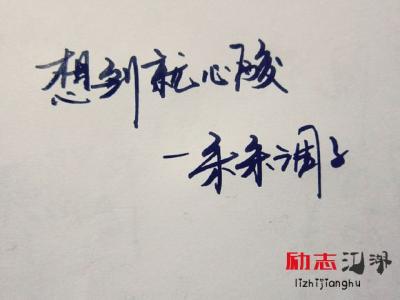 想到就心酸
一条条调子
励志江湖
lizhijianghu